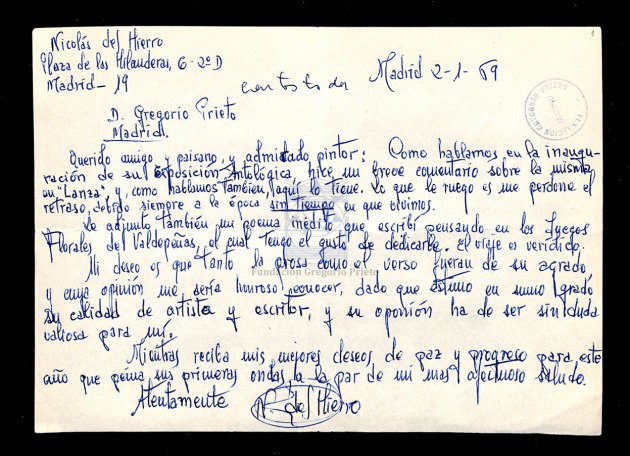 Nicolás del Hierro
Plaza de las Hilanderas, 6-2º D
Madrid-19
contestada
Madrid 2-1-69
1
FUNDACION GREGORIO PRIETO
D. Gregorio Prieto
Madrid.
Querido amigo y paisano, y admirado pintor: Como hablamos en la inaugu-
ración de su Exposición Antológica, hice un breve comentario sobre la misma
en "Lanza", y como hablamos también, aquí lo tiene. Lo que le ruego es me perdone el
retraso, debido siempre a la época sin tiempo en que vivimos.
Le adjunto también un poema inédito que escribí pensando en los Juegos
Florales de Valdepeñas, el cual tengo el gusto de dedicarle. El viaje es verídico.
Mi deseo es que tanto la prosa como el verso fueran de su agrado,
Fundación Gregorio Prieto
y cuya opinión me sería honroso conocer, dado que estimo en sumo grado
su calidad de artista y escritor, y su opinión ha de ser sin duda
valiosa para mí.
Mientras reciba mis mejores deseos de paz y progreso para este
año que peina sus primeras ondas, a la par de mi mas afectuoso saludo.
Atentamente
N. del Hierro